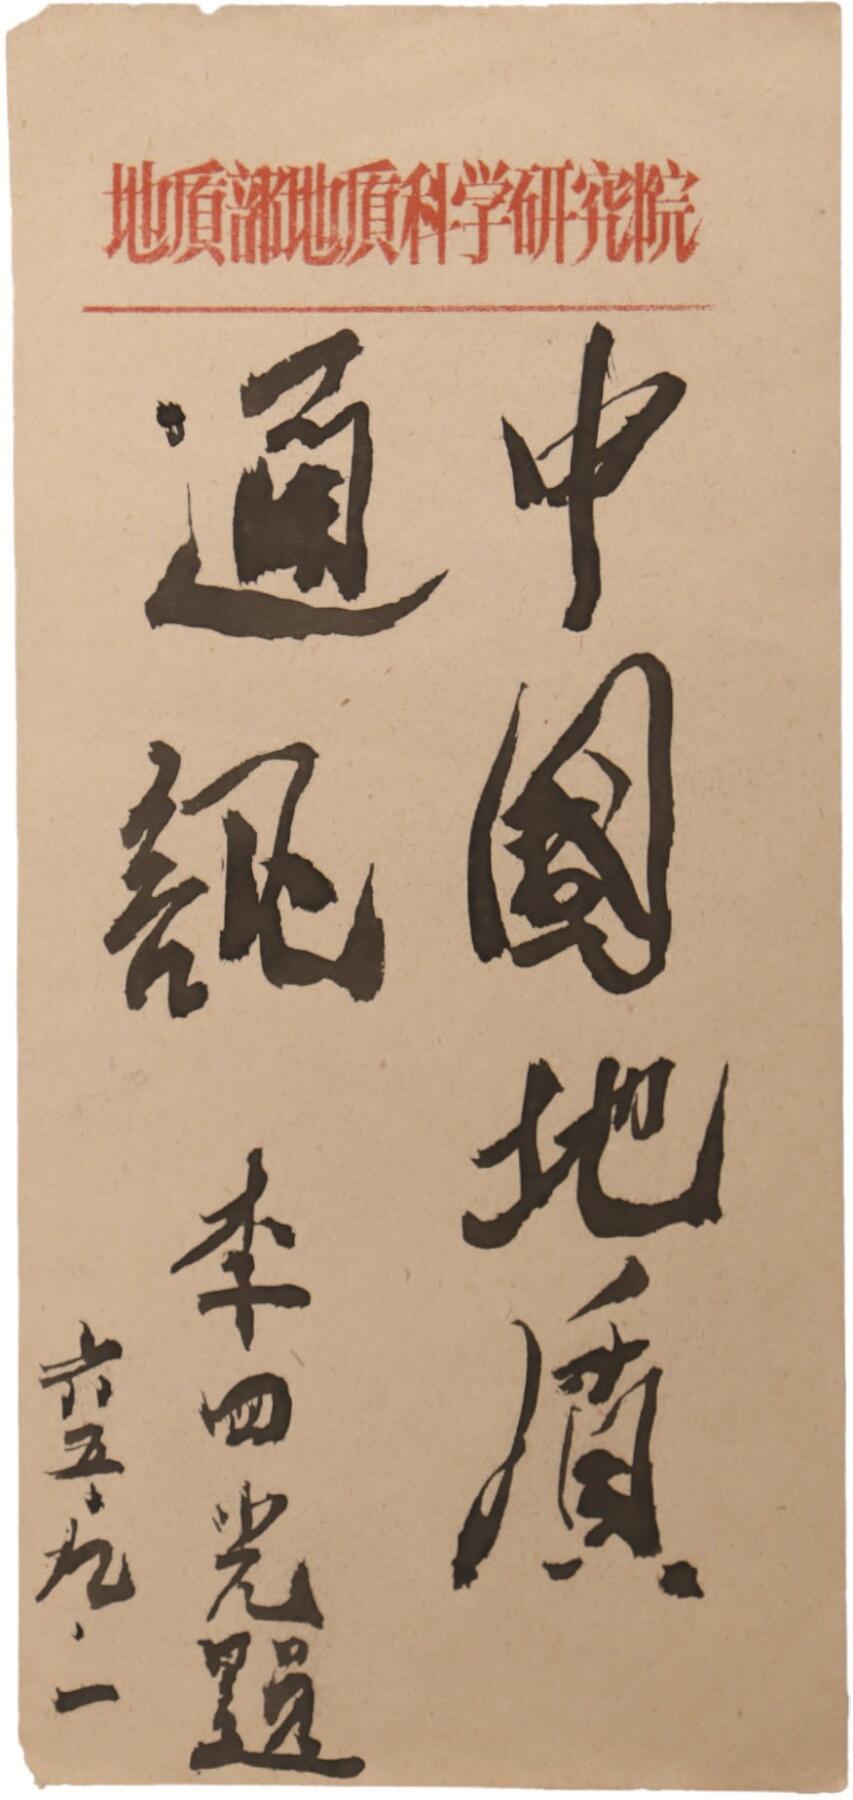 地质部地质科学研究院
中國地质
通訊
李四光題
六五、九、一